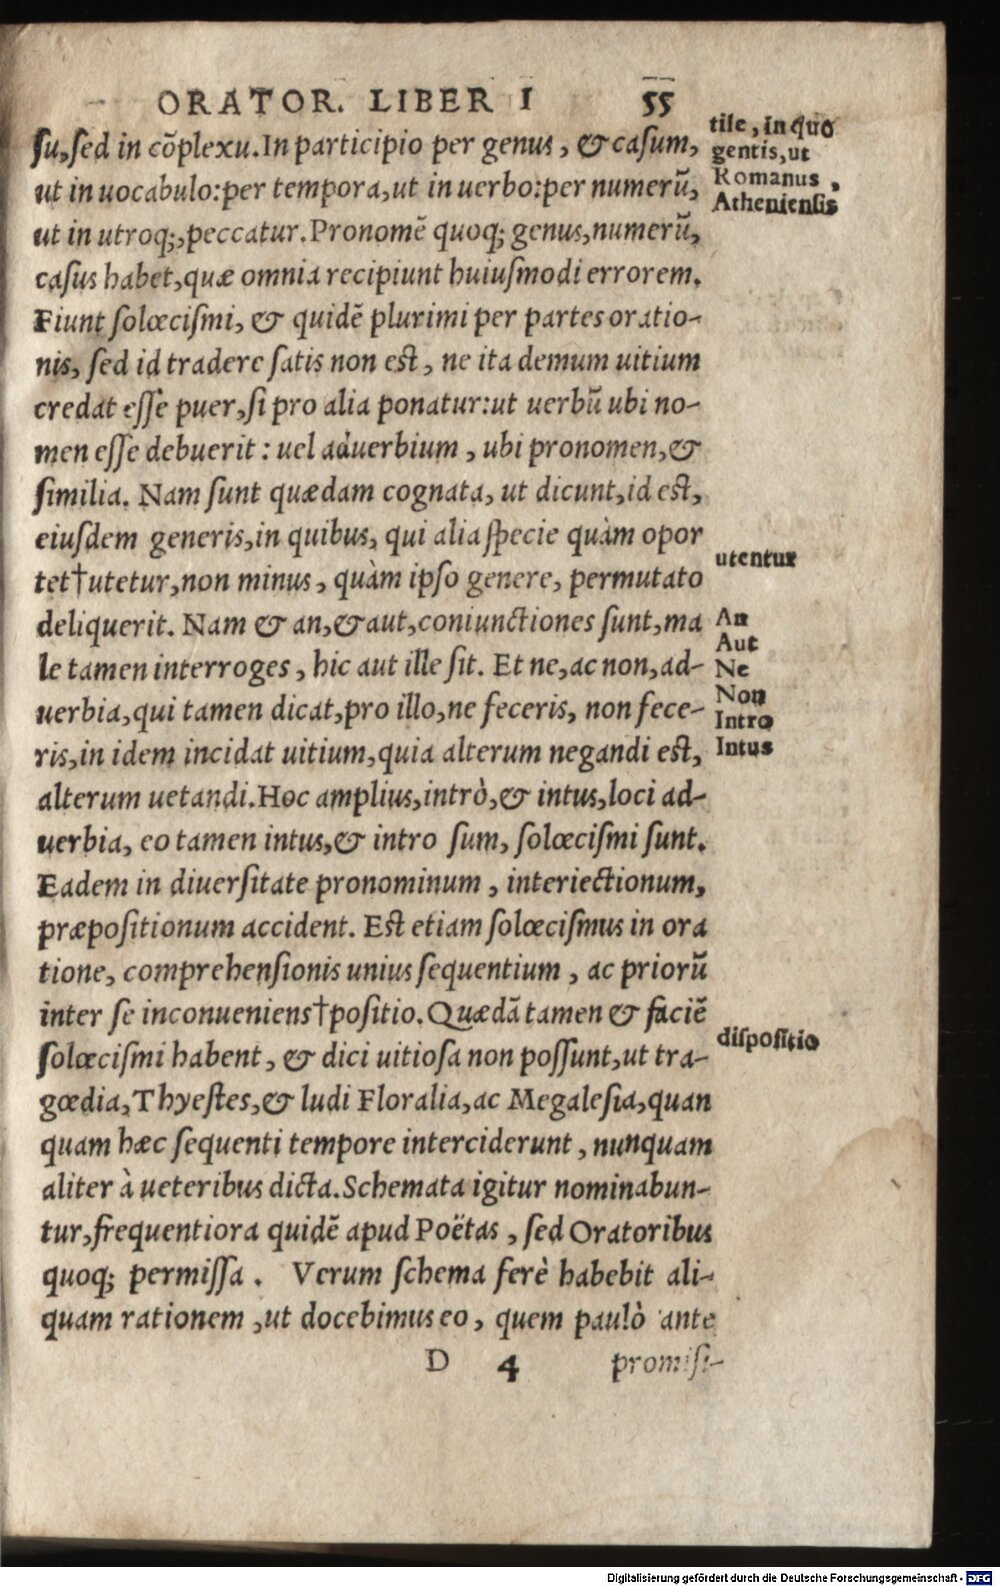 ORATOR. LIBER I 55
ſu, ſed in cõplexu. In participio per genus, & caſum,
ut in uocabulo: per tempora, ut in uerbo: per numerũ,
ut in utroq;, peccatur. Pronomẽ quoq; genus, numerũ,
caſus habet, quæ omnia recipiunt huiuſmodi errorem.
Fiunt ſolœciſmi, & quidẽ plurimi per partes oratio-
nis, ſed id tradere ſatis non eſt, ne ita demum uitium
credat eſſe puer, ſi pro alia ponatur: ut uerbũ ubi no-
men eſſe debuerit: uel aduerbium, ubi pronomen, &
ſimilia. Nam ſunt quædam cognata, ut dicunt, id eſt,
eiuſdem generis, in quibus, qui alia ſpecie quàm opor
tet†utetur, non minus, quàm ipſo genere, permutato
deliquerit. Nam & an, & aut, coniunctiones ſunt, ma
le tamen interroges, hic aut ille ſit. Et ne, ac non, ad-
uerbia, qui tamen dicat, pro illo, ne feceris, non fece-
ris, in idem incidat uitium, quia alterum negandi eſt,
alterum uetandi. Hoc amplius, intrò, & intus, loci ad-
uerbia, eo tamen intus, & intro ſum, ſolœciſmi ſunt.
Eadem in diuerſitate pronominum, interiectionum,
præpoſitionum accident. Eſt etiam ſolœciſmus in ora
tione, comprehenſionis unius ſequentium, ac priorũ
inter ſe inconueniens†poſitio. Quædã tamen & faciẽ
ſolœciſmi habent, & dici uitioſa non poſſunt, ut tra-
gœdia, Thyeſtes, & ludi Floralia, ac Megaleſia, quan
quam hæc ſequenti tempore interciderunt, nunquam
aliter à ueteribus dicta. Schemata igitur nominabun-
tur, frequentiora quidẽ apud Poëtas, ſed Oratoribus
quoq; permiſſa. Verum ſchema ferè habebit ali-
quam rationem, ut docebimus eo, quem paulò ante
D 4 promiſi-
tile, in quo
gentis, ut
Romanus,
Athenienſis
utentur
An
Aut
Ne
Non
Intro
Intus
diſpoſitio
Digitalisierung gefördert durch die Deutsche Forschungsgemeinschaft - DFG